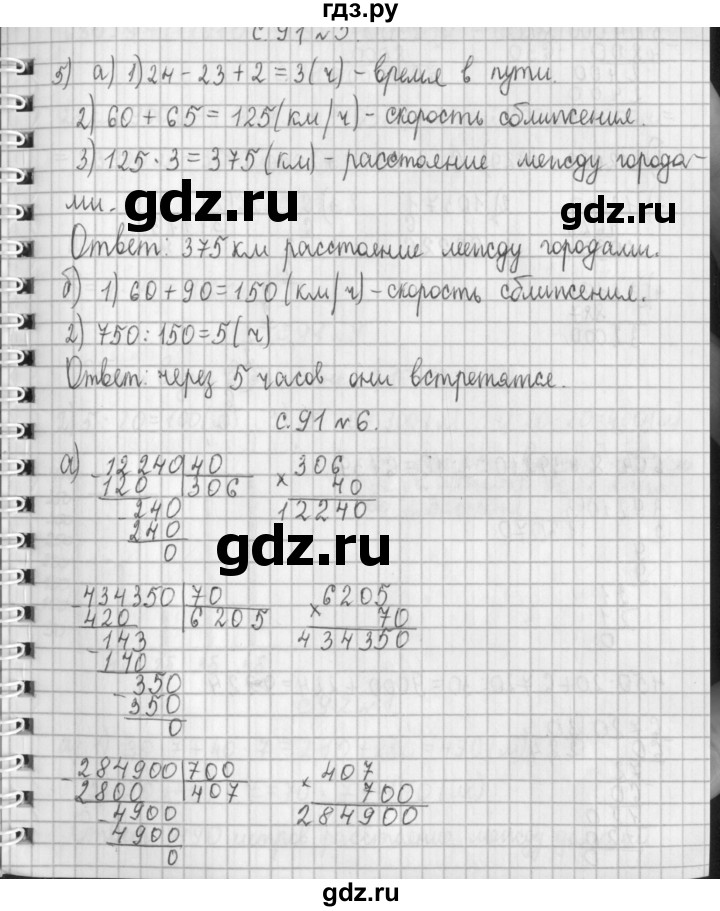 гдз.ру
с. 91 № 5.
5) а) 1) 24 - 23 + 2 = 3 (ч) - время в пути.
2) 60 + 65 = 125 (км/ч) - скорость сближения.
3) 125 · 3 = 375 (км) - расстояние между города-
ми.
gdz.ru gdz.ru
Ответ: 375 км расстояние между городами.
б) 1) 60 + 90 = 150 (км/ч) - скорость сближения.
2) 750 : 150 = 5 (ч)
Ответ: через 5 часов они встретятся.
с. 91 № 6.
а) - 12240 | 40 × 306
120 | 306 40
- 240 12240
240
0
gdz.ru gdz.ru
- 434350 | 70 × 6205
420 | 6205 70
- 143 434350
140
- 350
350
0
- 284900 | 700 × 407
2800 | 407 700
- 4900 284900
4900
0
gdz.ru gdz.ru
gdz.ru